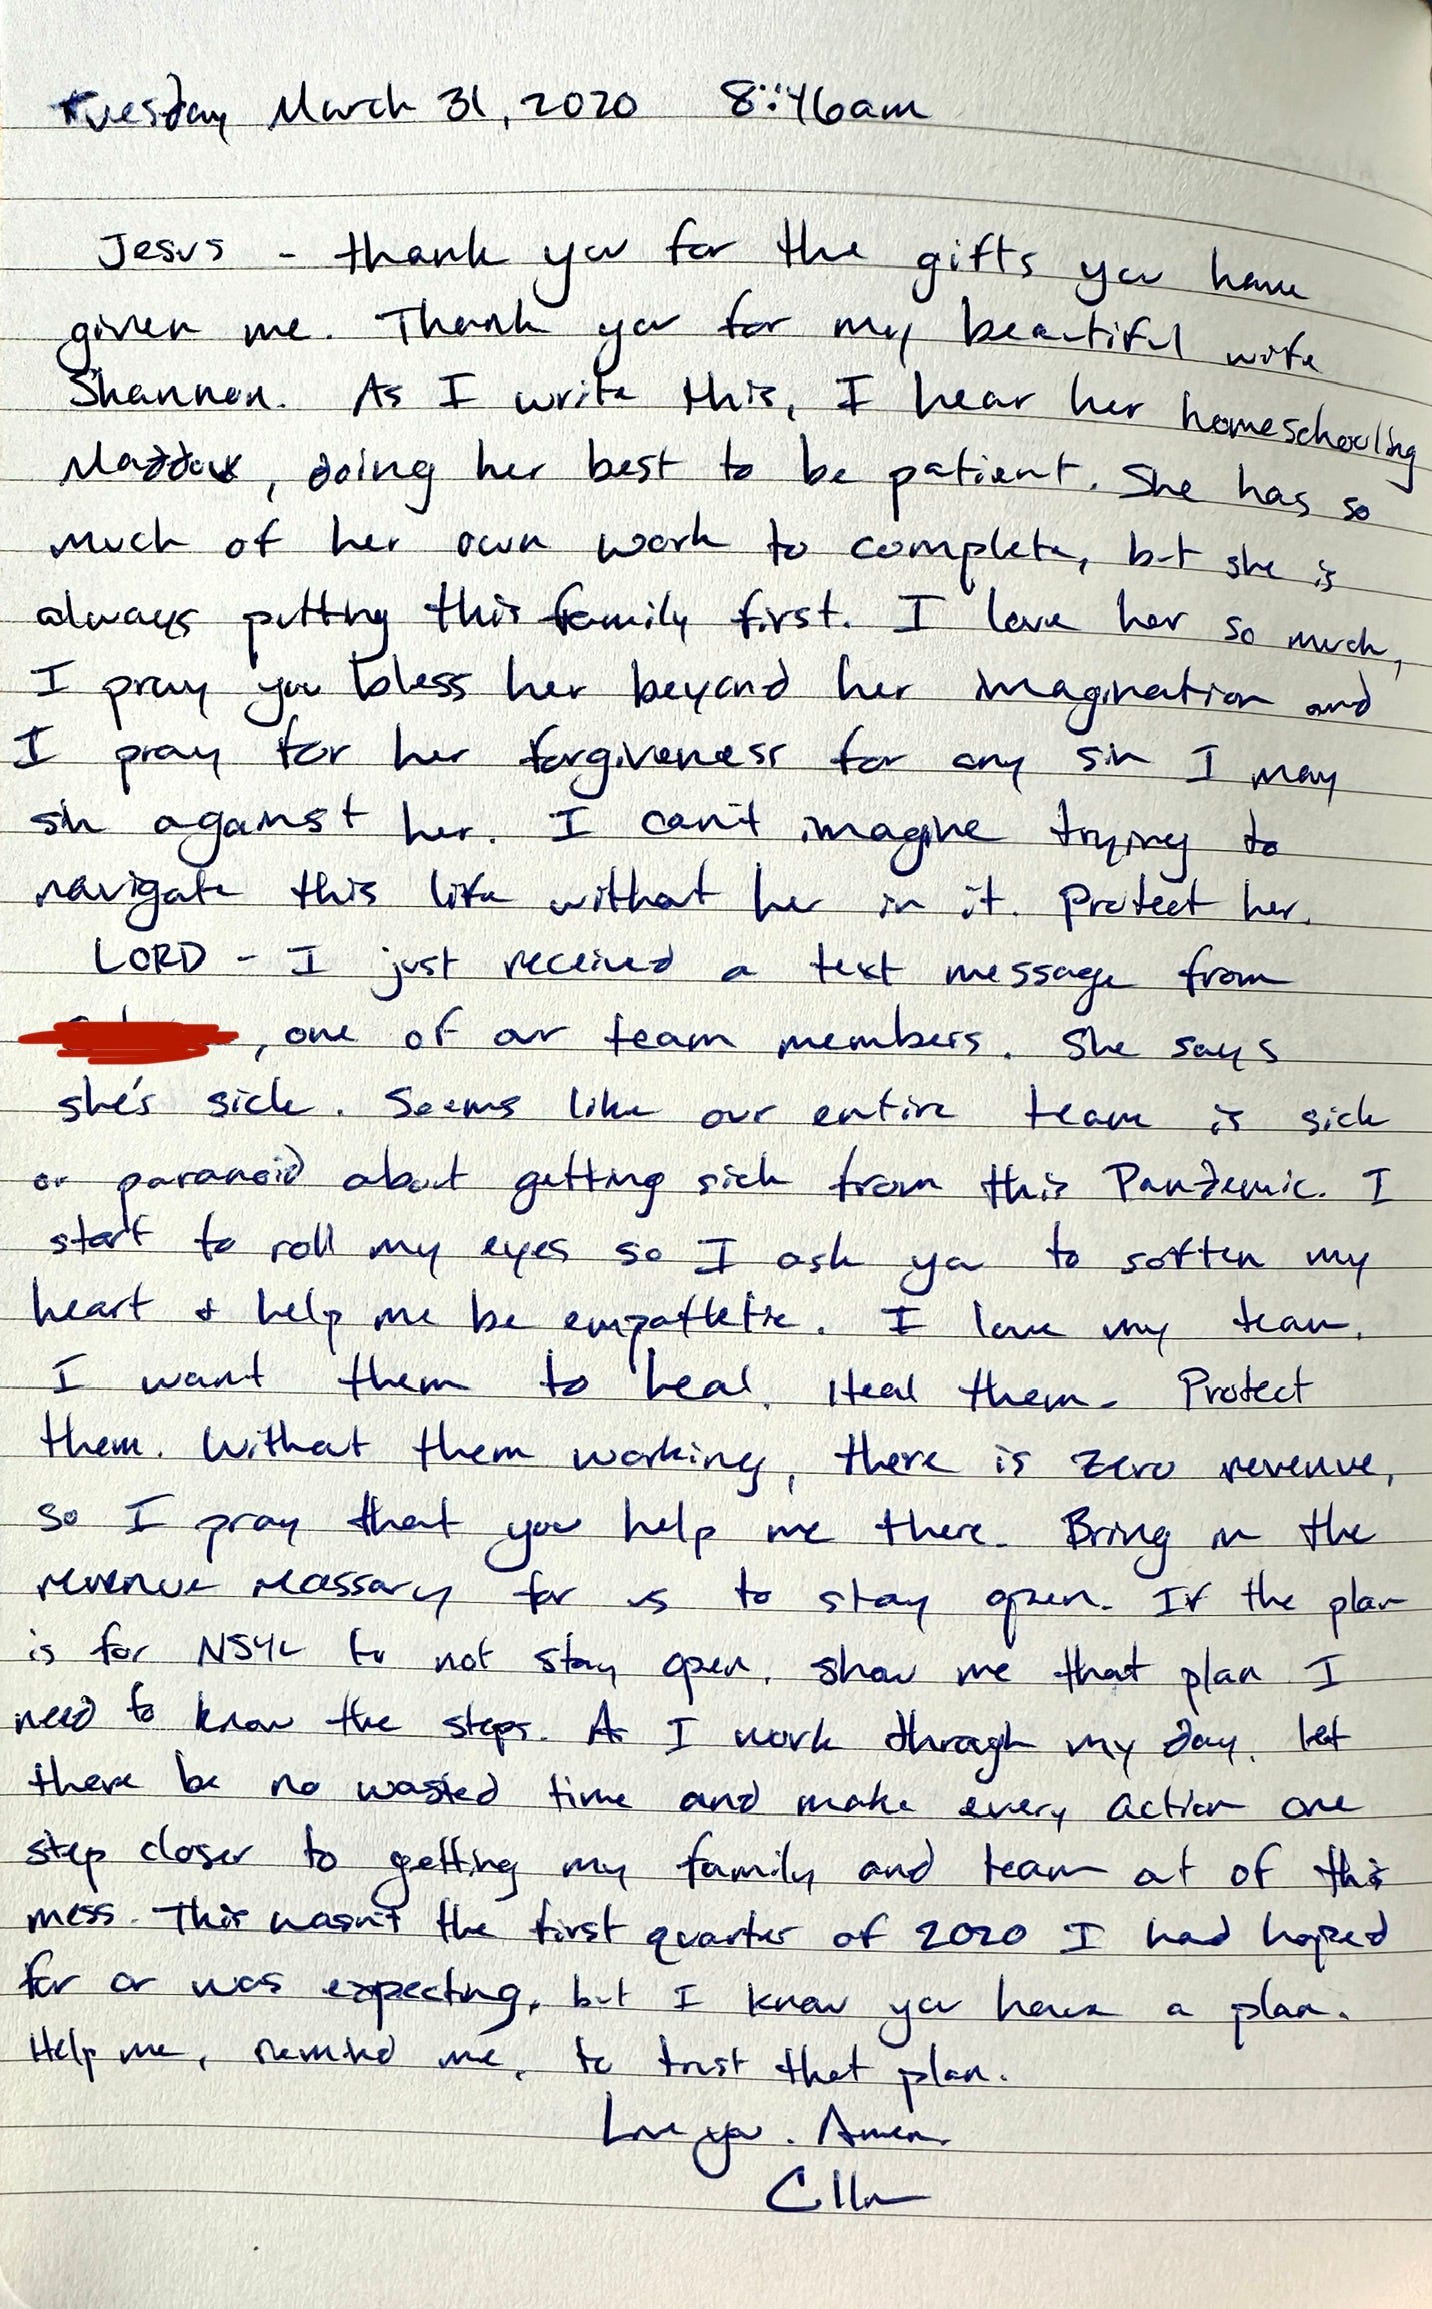 Tuesday March 31, 2020 8:46am
Jesus - thank you for the gifts you have
given me. Thank you for my beautiful wife
Shannon. As I write this, I hear her homeschooling
Maddox, doing her best to be patient. She has so
much of her own work to complete, but she is
always putting this family first. I love her so much,
I pray you bless her beyond her imagination and
I pray for her forgiveness for any sin I may
sin against her. I can't imagine trying to
navigate this life without her in it. Protect her.
LORD - I just received a text message from
, one of our team members. She says
she's sick. Seems like our entire team is sick
or paranoid about getting sick from this Pandemic. I
start to roll my eyes so I ask you to soften my
heart & help me be empathetic. I love my team.
I want them to heal. Heal them. Protect
them. Without them working, there is zero revenue,
so I pray that you help me there. Bring in the
revenue necessary for us to stay open. If the plan
is for NSYL to not stay open, show me that plan I
need to know the steps. As I work through my day, let
there be no wasted time and make every action one
step closer to getting my family and team out of this
mess. This wasn't the first quarter of 2020 I had hoped
for or was expecting, but I know you have a plan.
Help me, remind me, to trust that plan.
Love you. Amen.